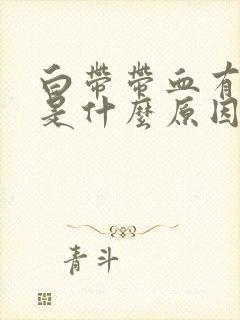 白帶帶血有
是什麼原因
青斗